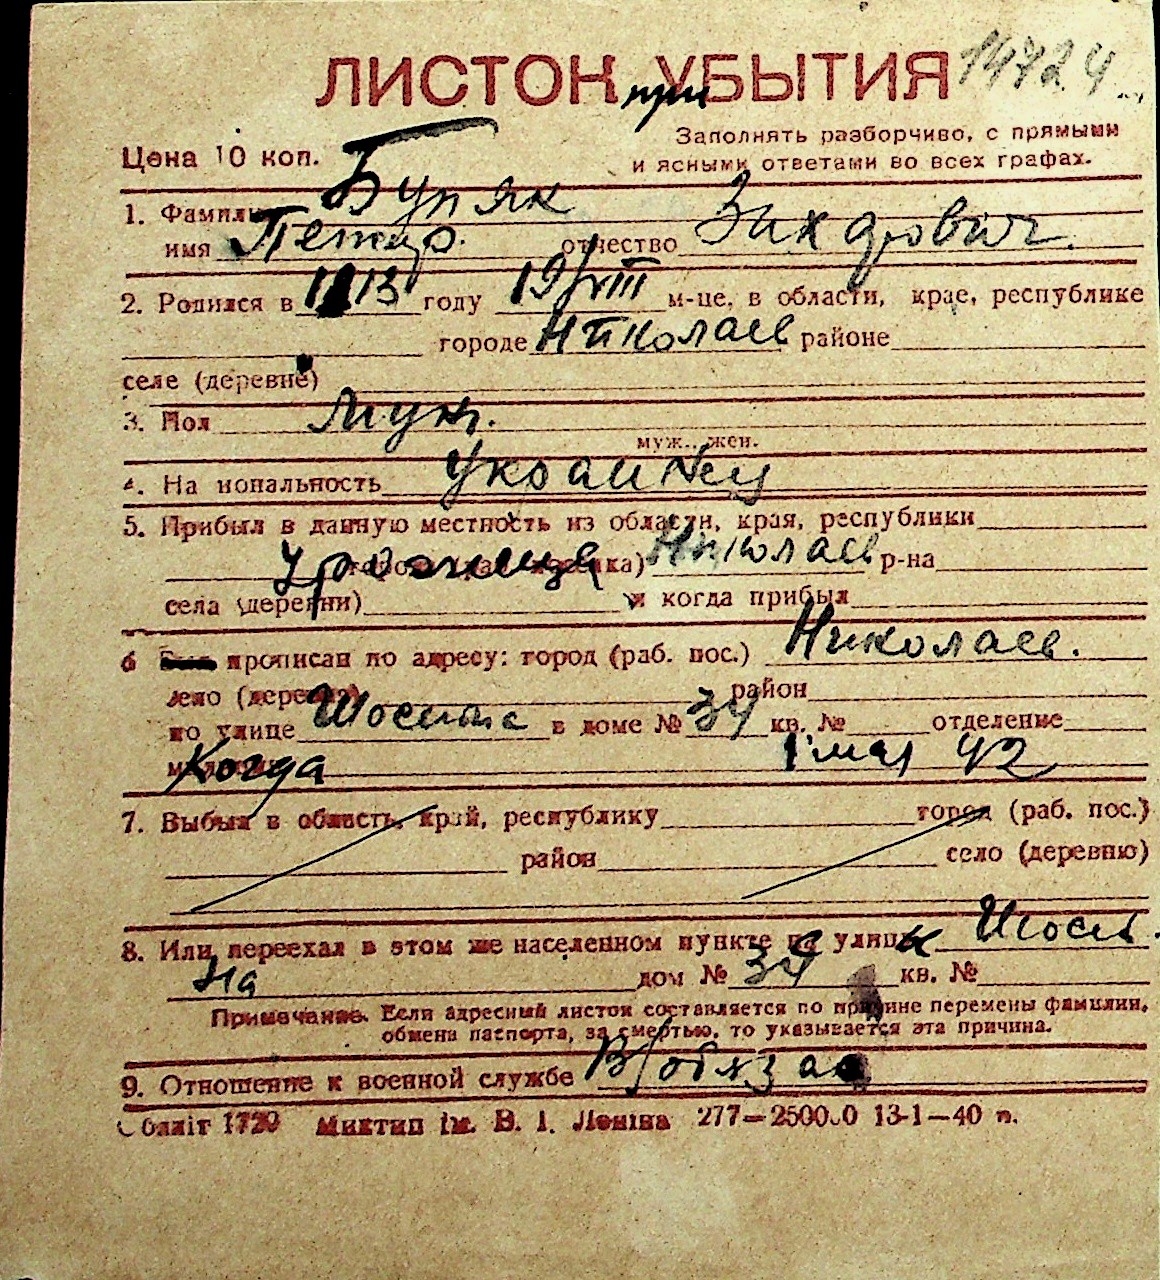 ЛИСТОК при УБЫТИЯ 14724
Цена 10 коп.
Заполнять разборчиво, с прямыми
и ясными ответами во всех графах.
1. Фамилия Буряк
имя Петр. отчество
2. Родился в 1913 году 19/VIII м-це, в области, крае, республике
городе Николаев районе
селе (деревне)
3. Пол Муж.
муж., жен.
4. На иональность Украинец
5. Прибыл в данную местность из области, края, республики
Уроженец Николаев р-на
села (деревни) и когда прибыл
6 Был прописан по адресу: город (раб. пос.) Николаев.
село (деревня) район
по улице в доме № 34 кв. № отделение
Когда 1 мая 42
7. Выбыл в область, край, республику город (раб. пос.)
район село (деревню)
8. Или переехал в этом же населенном пункте с улицы
На дом № 34 кв. №
Примечание. Если адресный листок составляется по причине перемены фамилии,
обмена паспорта, за смертью, то указывается эта причина.
9. Отношение к военной службе В/обяза
Обліт 1729 Миктип ім. В. І. Леніна 277—250000 13-1—40 п.